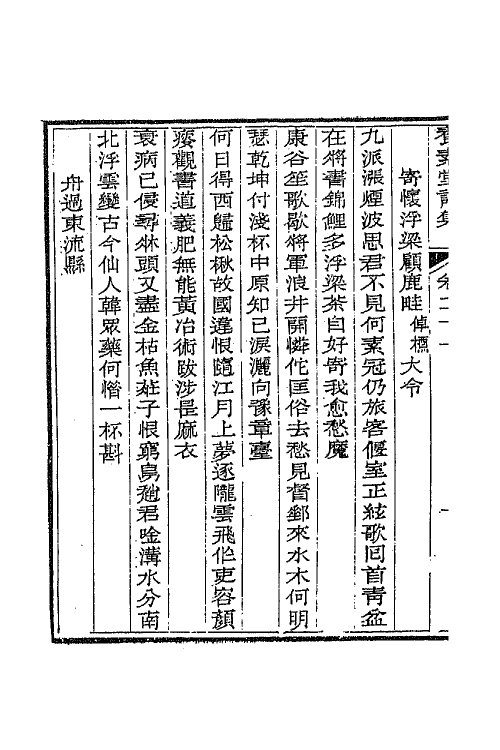 養素堂詩集　卷二十一
寄懷浮梁顧鹿畦倬槱大令
九派漲煙波思君不見何素冠仍旅客偃室正絃歌回首靑盆
在將書錦鯉多浮梁茶自好寄我愈愁魔
康谷笙歌歇將軍浪井開憐佗匡俗去愁見督郵來水木何明
瑟乾坤付淺杯中原知己淚灑向豫章臺
何日得西歸松楸故國違恨隨江月上夢逐隴雲飛作吏容顏
瘦觀書道義肥無能黃冶術跋涉是麻衣
衰病已侵尋牀頭又盡金枯魚莊子恨窮鳥趙君吟溝水分南
北浮雲變古今仙人韓眾藥何惜一杯斟
舟過東流縣